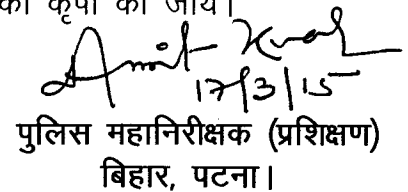 की कृपा की जाय।
Amit Kumar
17/3/15
पुलिस महानिरीक्षक (प्रशिक्षण)
बिहार, पटना।